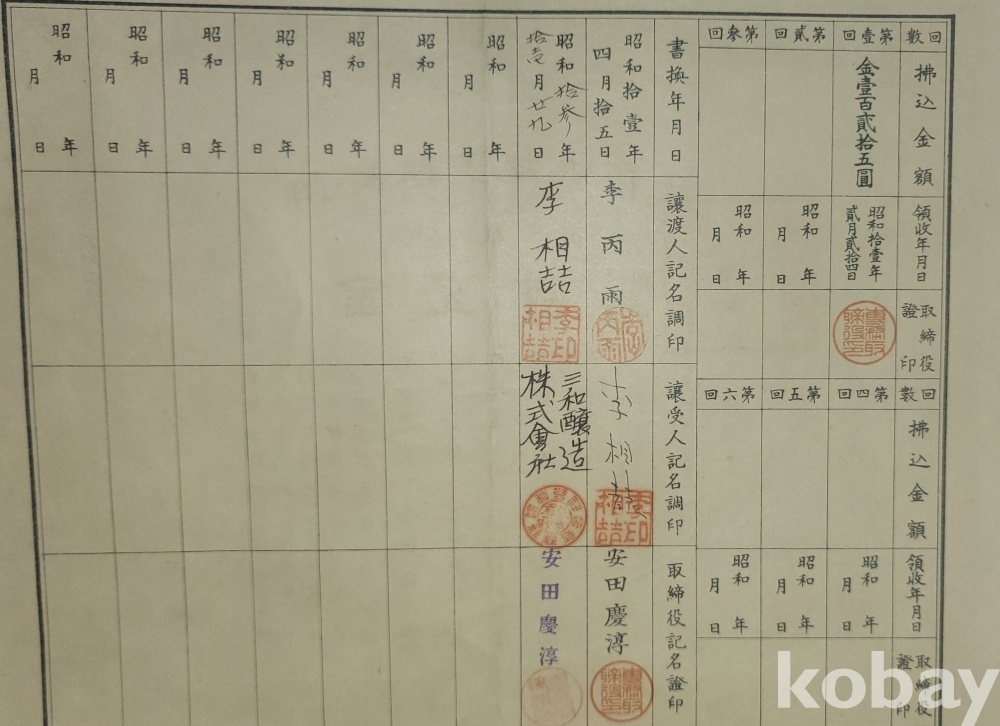 回數
第壹回
第貳回
第參回
拂込金額
金壹百貳拾五圓
領收年月日
昭和拾壹年
貳月貳拾四日
昭和 年
月 日
昭和 年
月 日
取締役
證印
回數
第四回
第五回
第六回
拂込金額
領收年月日
昭和 年
月 日
昭和 年
月 日
昭和 年
月 日
取締役
證印
書換年月日
讓渡人記名調印
讓受人記名調印
取締役記名證印
昭和拾壹年
四月拾五日
李丙雨
李相喆
李印
相喆
安田慶淳
昭和拾參年
拾壹月廿九日
李相喆
李印
相喆
三和釀造
株式會社
安田慶淳
昭和 年
月 日
昭和 年
月 日
昭和 年
月 日
昭和 年
月 日
昭和 年
月 日
昭和 年
月 日
昭和 年
月 日
kobay